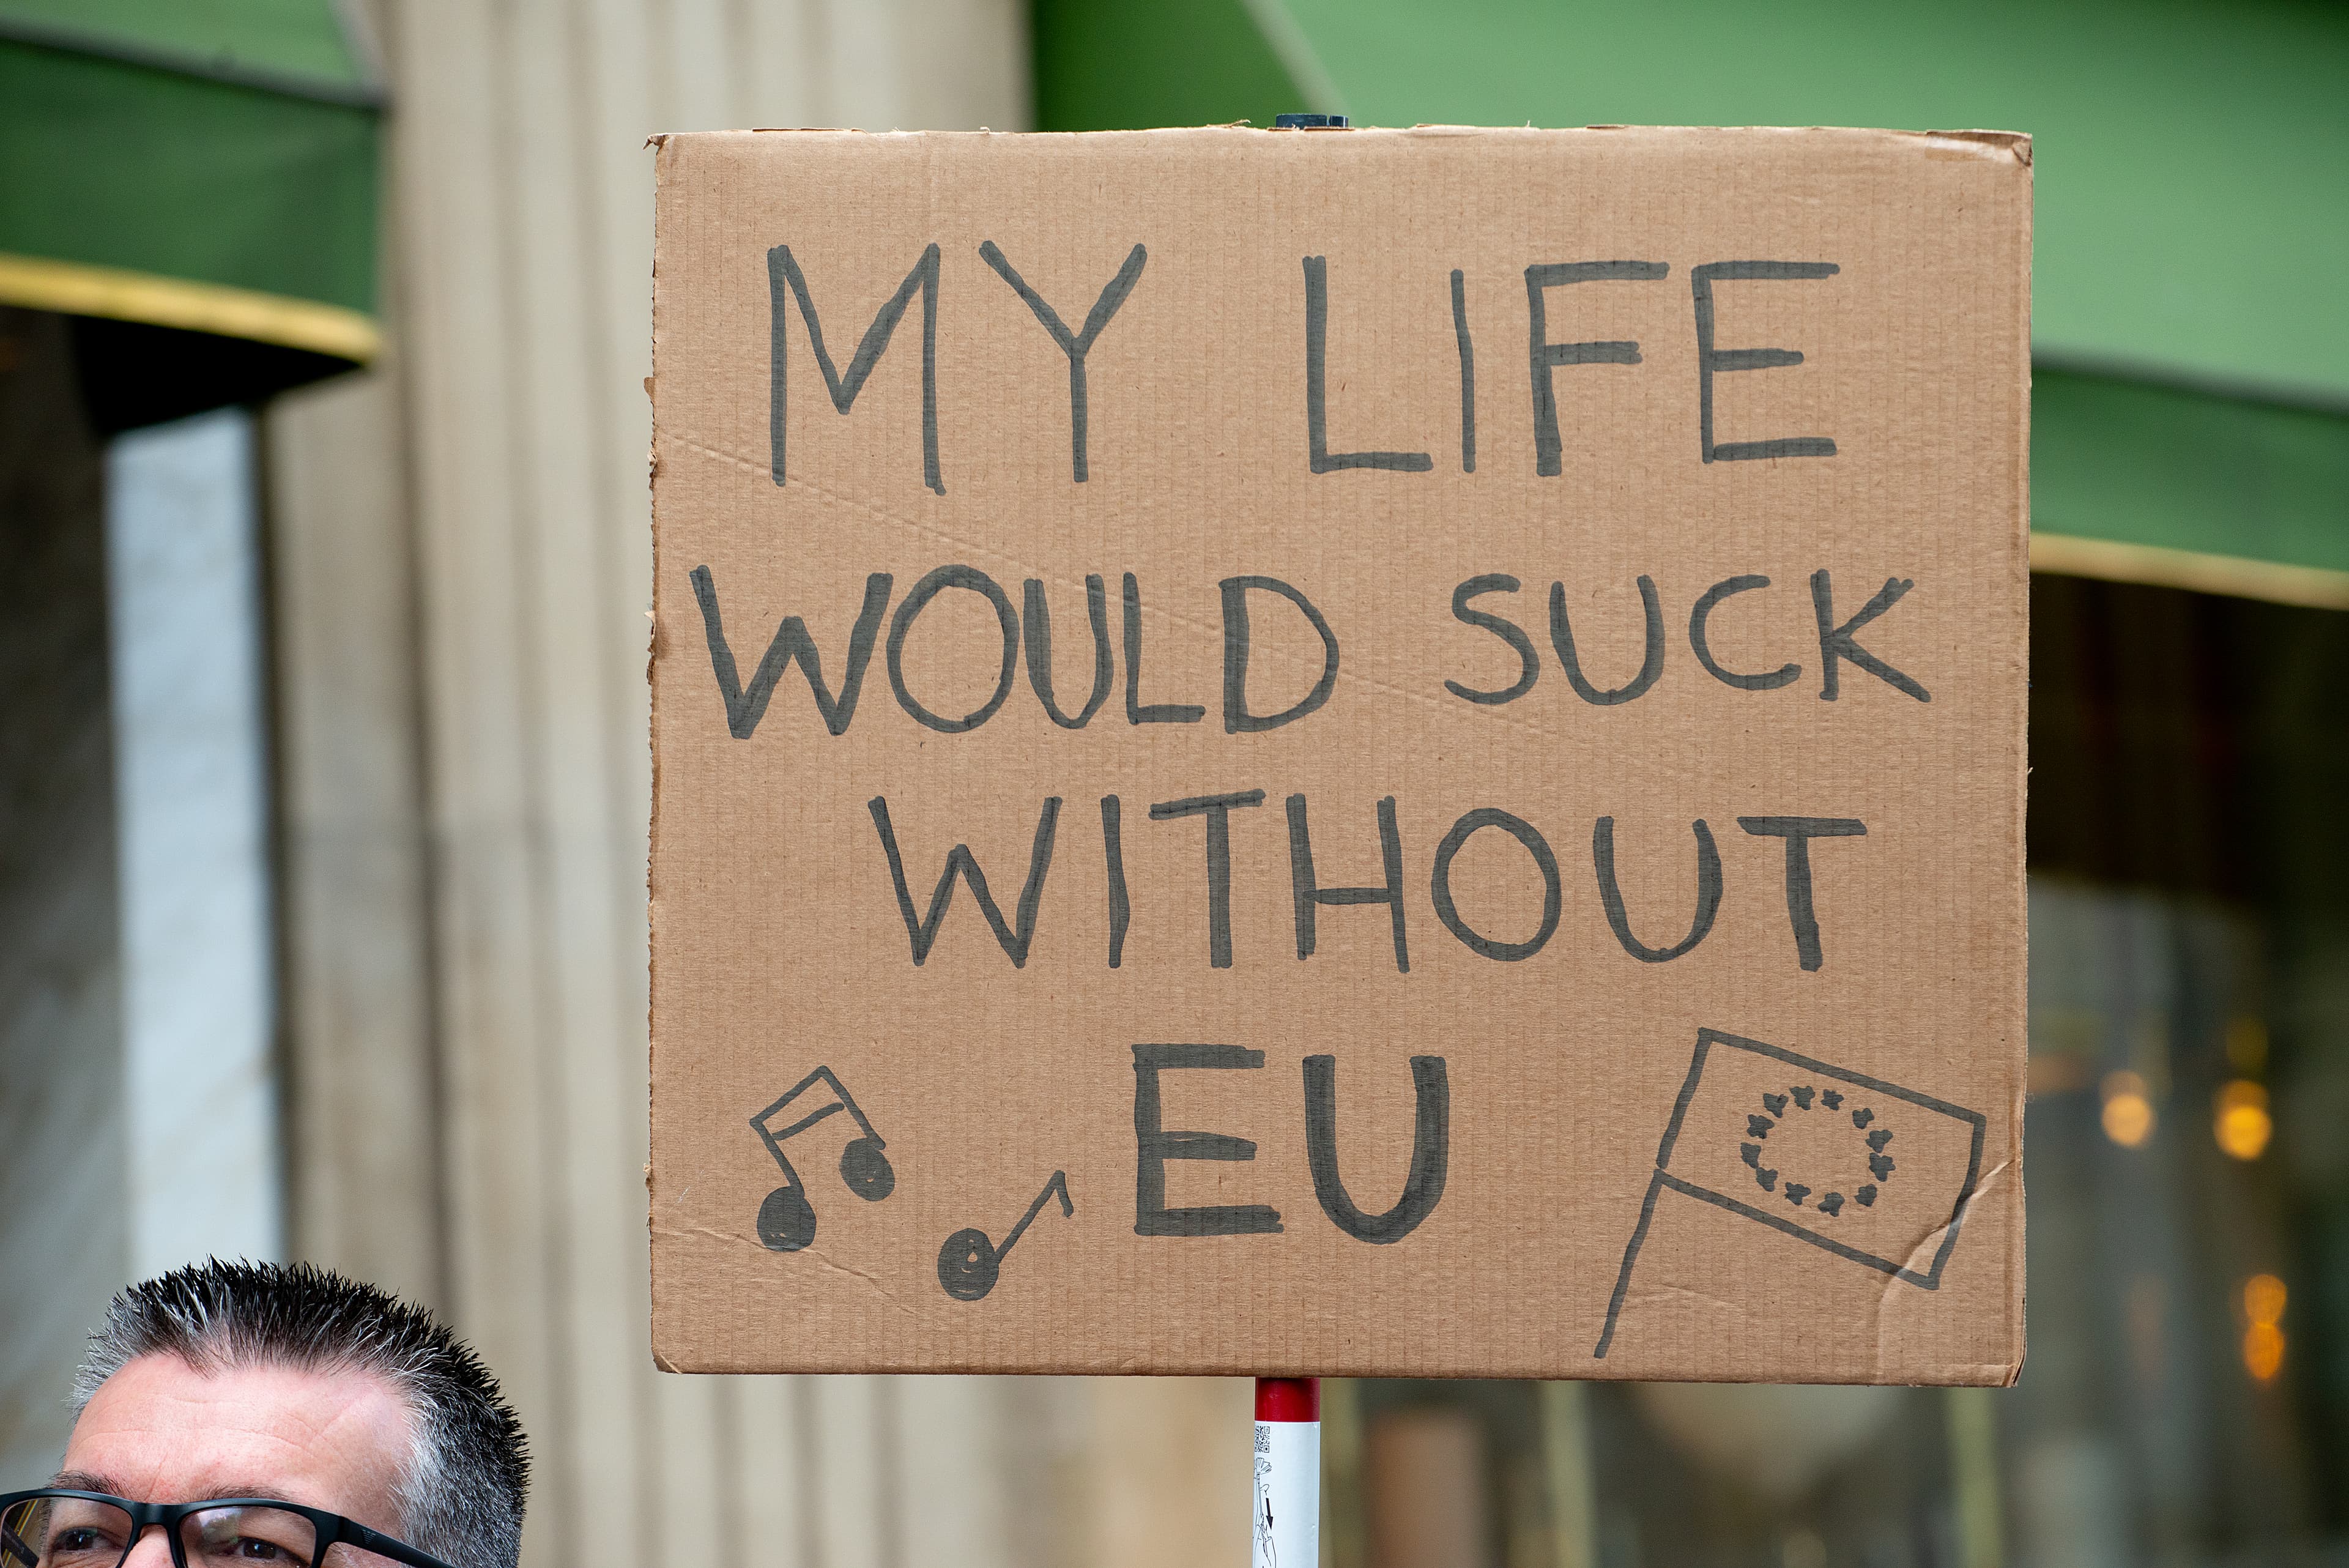 MY LIFE
WOULD SUCK
WITHOUT
EU